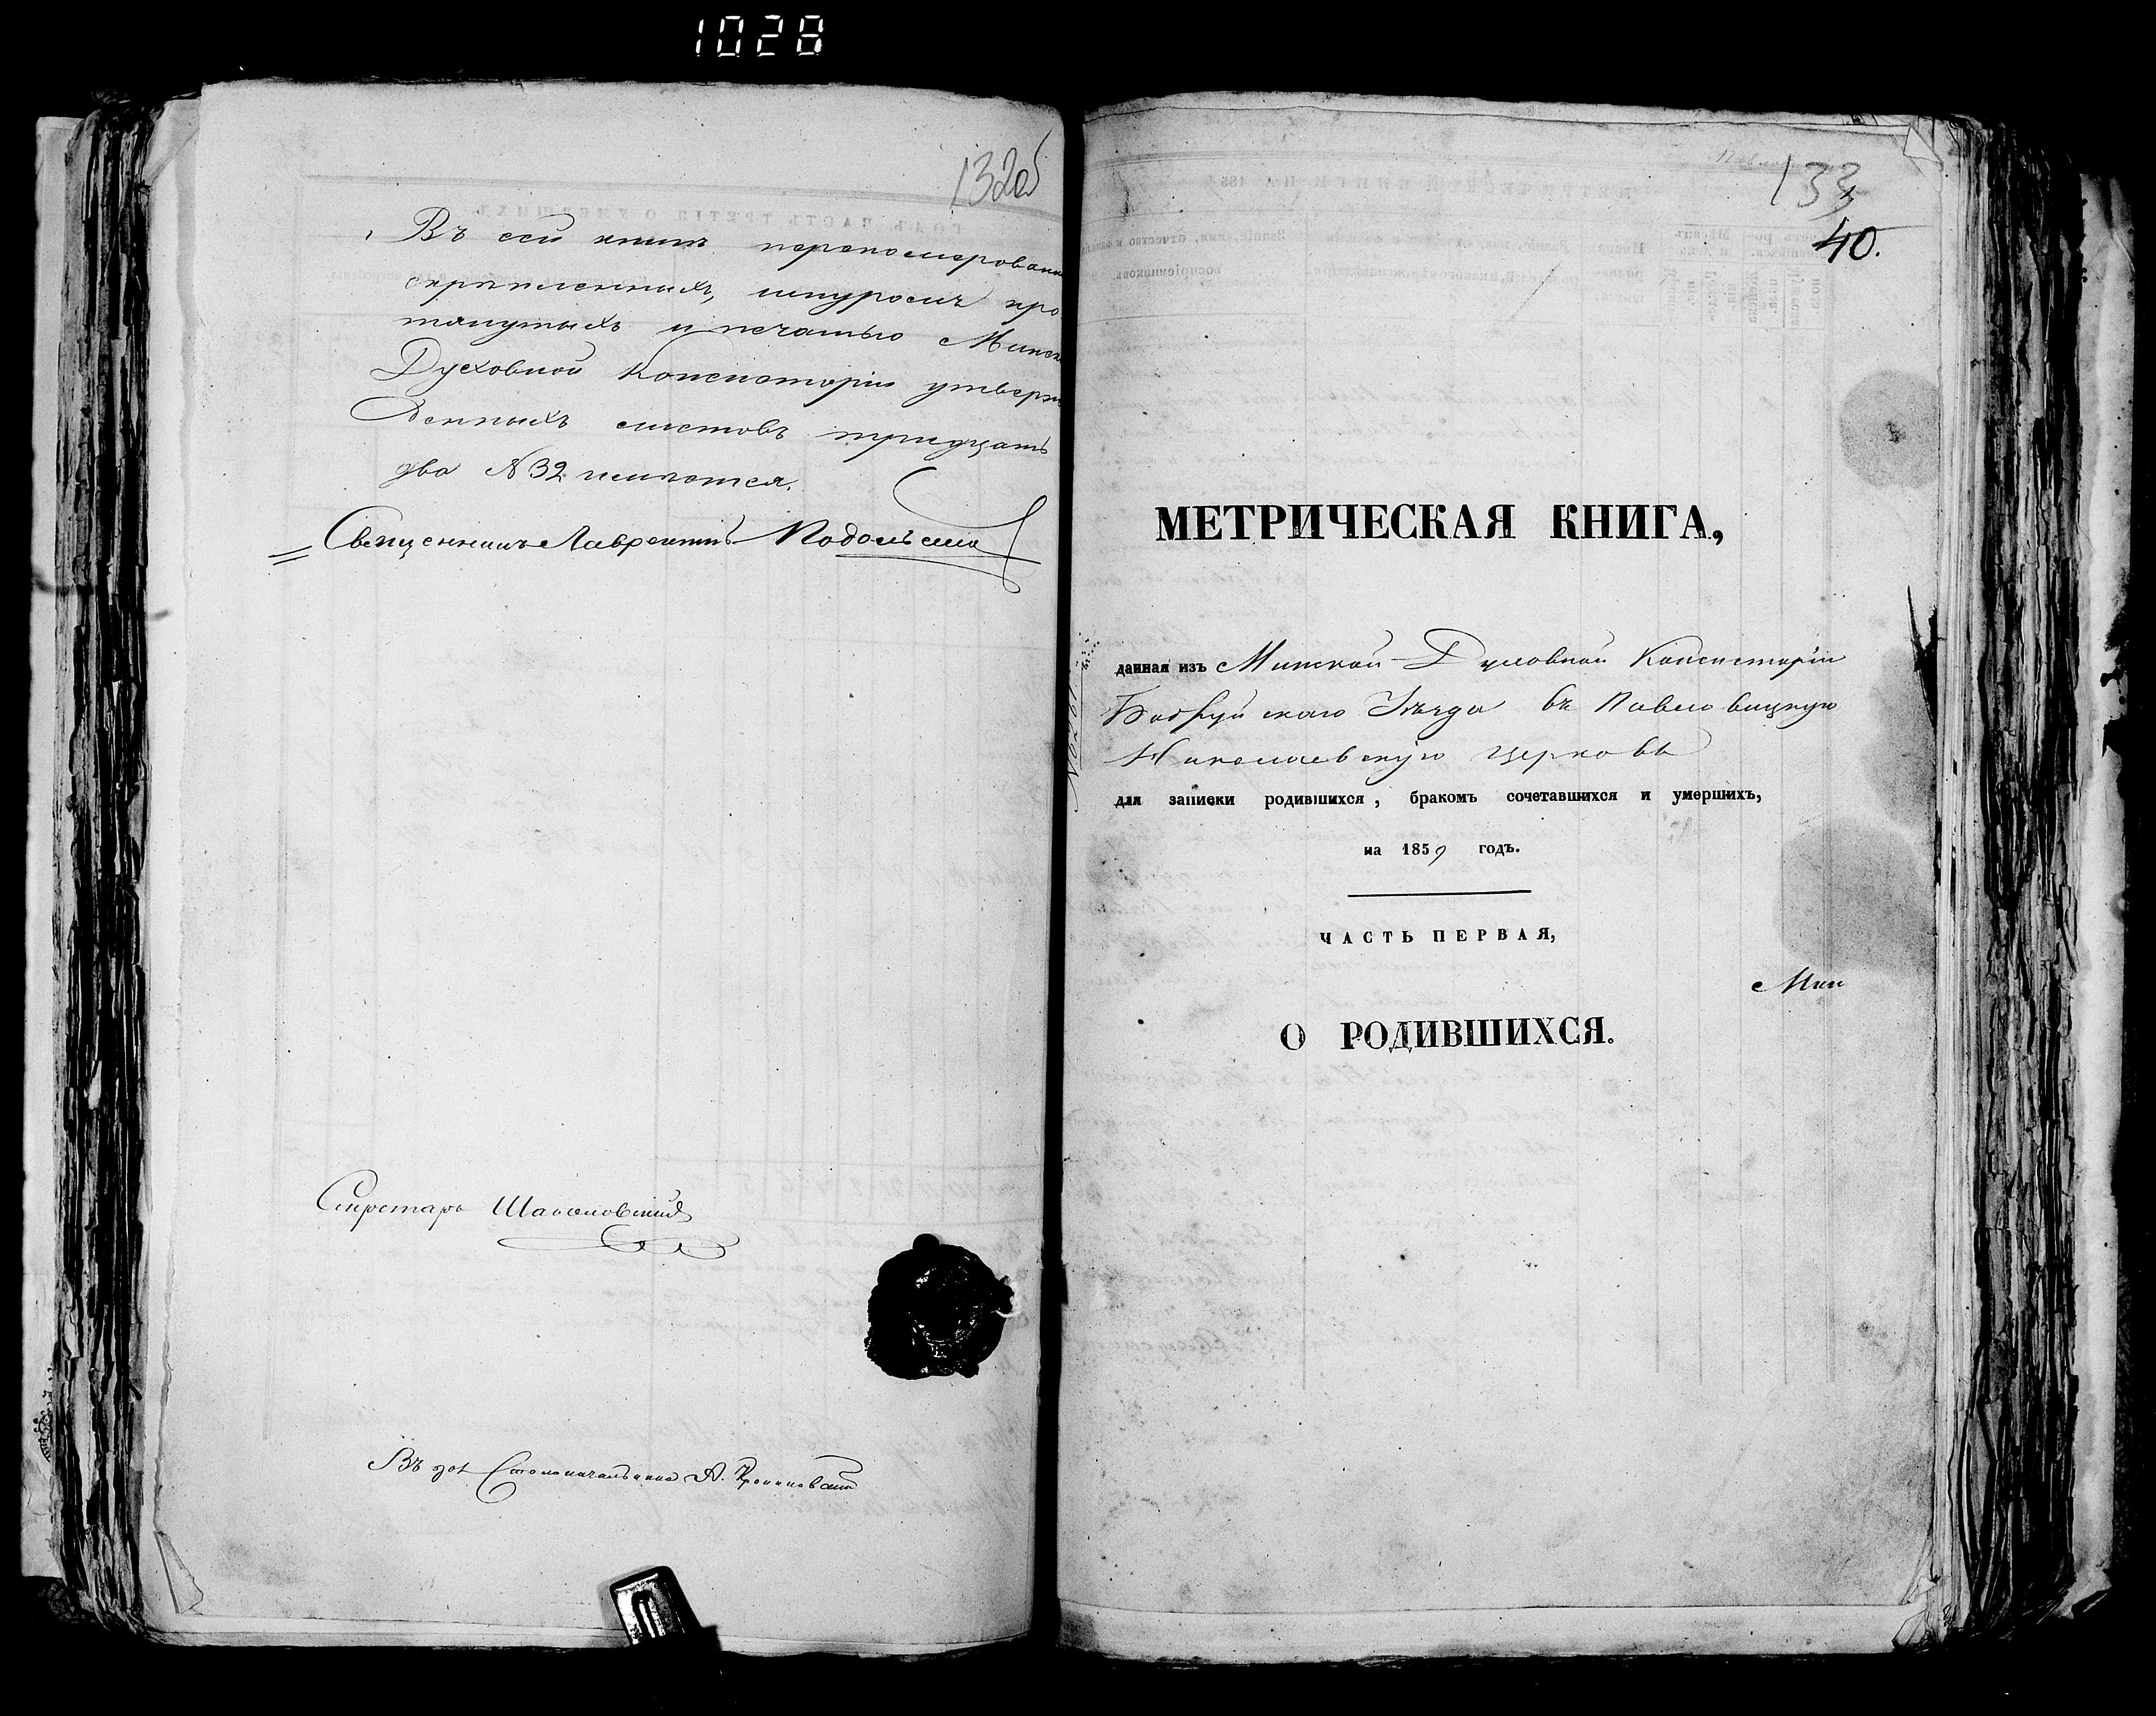 1028
132об
Въ сей книгѣ перенумерованн
скрѣпленныхъ, шнуромъ про
тянутыхъ и печатью Минск
Духовной Консисторіи утверж
денныхъ листовъ тридцать
два №32 имѣется.
Священникъ Лаврентій Подольскій
Секретарь
Въ дол. Столоначальника А.
133
40.
МЕТРИЧЕСКАЯ КНИГА,
данная изъ Минской Духовной Консисторіи
Бобруйскаго Уѣзда въ Павловицкую
Николаевскую церковь
для записки родившихся, бракомъ сочетавшихся и умершихъ,
на 1859 годъ.
ЧАСТЬ ПЕРВАЯ,
Мин
О РОДИВШИХСЯ.